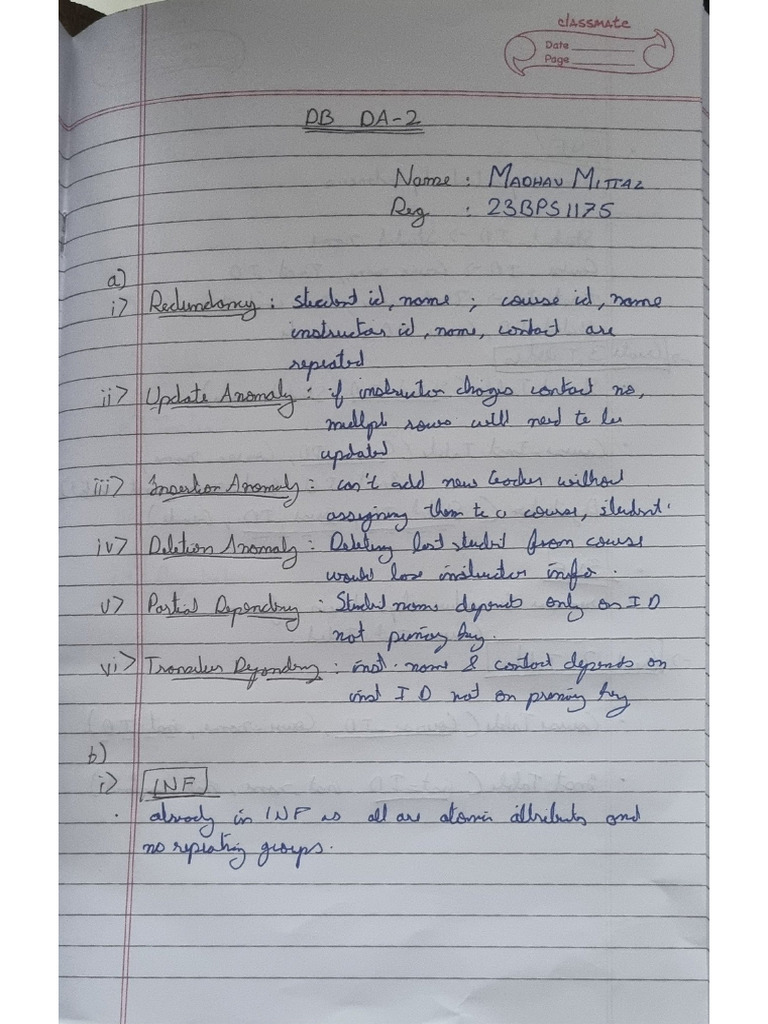 classmate
Date
Page
DB DA-2
Name : MADHAV MITTAL
Reg : 23BPS1175
a)
i> Redundancy : student id, name ; course id, name
instructor id, name, contact are
repeated
ii> Update Anomaly : if instructor changes contact no,
multiple rows will need to be
updated
iii> Insertion Anomaly : can't add new teacher without
assigning them to a course, student.
iv> Deletion Anomaly : Deleting last student from course
would lose instructor info.
v> Partial Dependency : Student name depends only on ID
not primary key.
vi> Transitive Dependency : inst. name & contact depends on
inst ID not on primary key
b)
i> 1NF
. already in 1NF as all are atomic attributes and
no repeating groups.